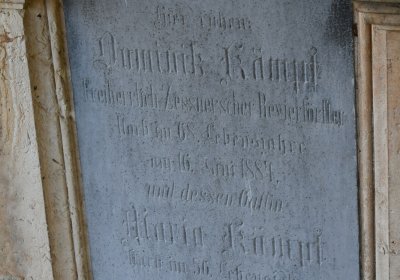 Hier ruhen:
Dominik Kämpf
Freiherrlich Zessner'scher Revierförster
starb im 68. Lebensjahre
am 16. 1884,
und dessen Gattin
Maria Kämpf
starb im 56. Lebensj